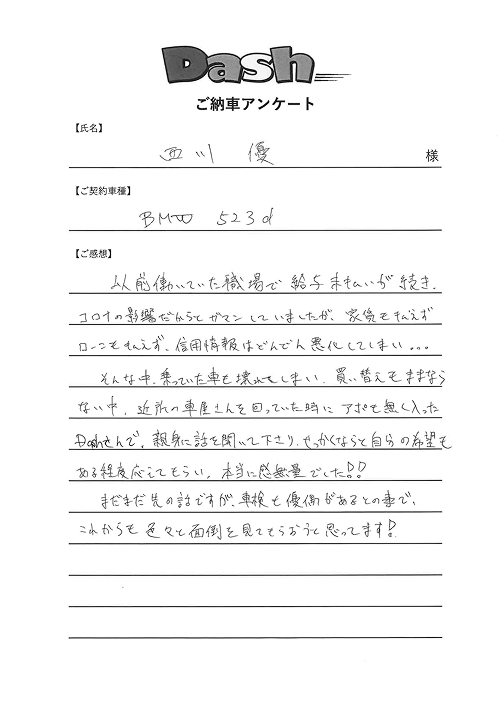 Dash
ご納車アンケート
【氏名】
西川 優 様
【ご契約車種】
BMW 523d
【ご感想】
以前働いていた職場で給与未払いが続き、
コロナの影響だからとガマンしていましたが、家賃も払えず
ローンも払えず、信用情報はどんどん悪化してしまい...
そんな中、乗っていた車も壊れてしまい、買い替えもままなら
ない中、近所の車屋さんを回っていた時にアポも無く入った
Dashさんで、親身に話を聞いて下さり、せっかくならと自分の希望も
ある程度応えてもらい、本当に感無量でした!!
まだまだ先の話ですが、車検も優偶があるとの事で、
これからも色々と面倒を見てもらおうと思ってます!